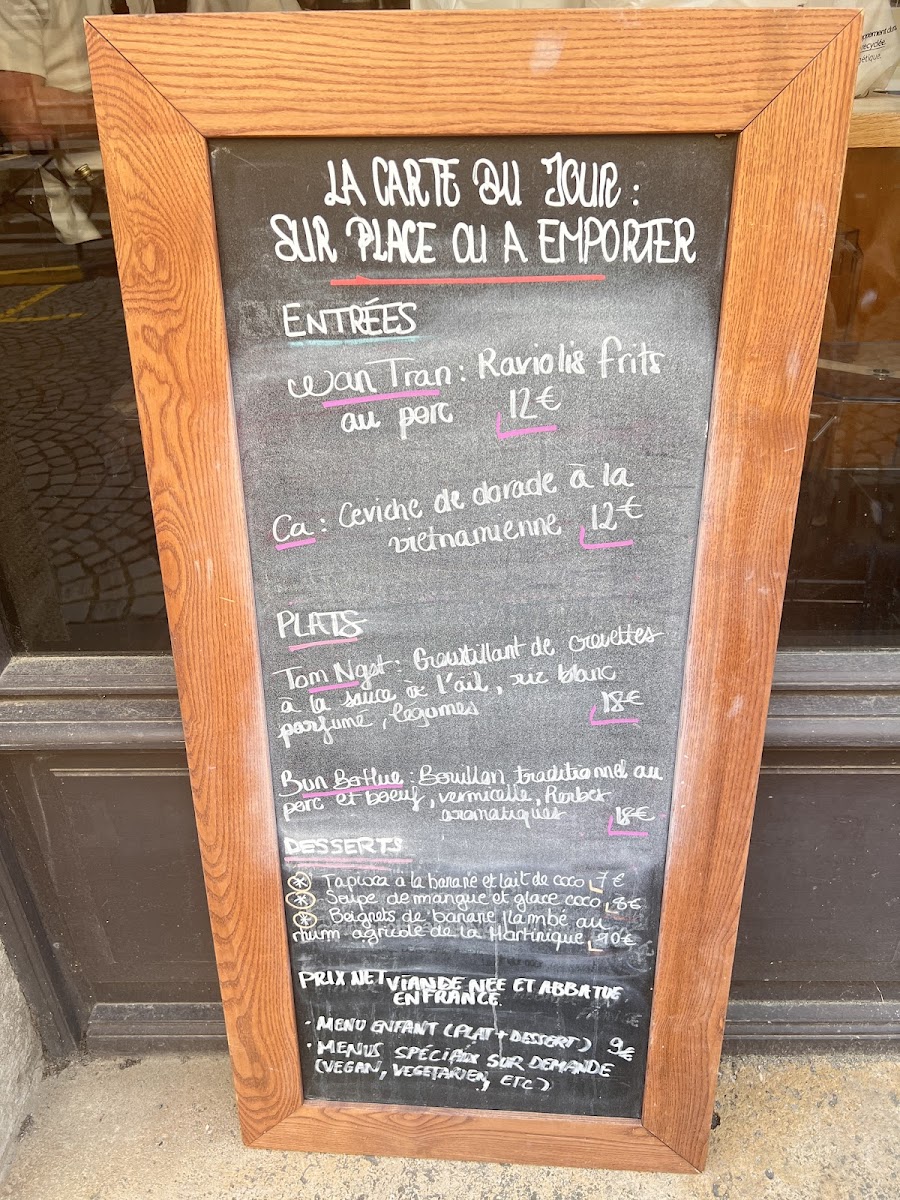 LA CARTE DU JOUR :
SUR PLACE OU A EMPORTER
ENTRÉES
Wan Tran : Raviolis frits
au porc 12€
Ca : Ceviche de dorade à la
vietnamienne 12€
PLATS
Tom Ngot : Croustillant de crevettes
a la sauce à l'ail, riz blanc
parfumé, légumes 18€
Bun Bo Hue : Bouillon traditionnel au
porc et boeuf, vermicelle, Herbes
aromatiques 18€
DESSERTS
Tapioca a la banane et lait de coco 7€
Soupe de mangue et glace coco 8€
Beignets de banane flambé au
rhum agricole de la Martinique 10€
PRIX NET VIANDE NÉE ET ABBATUE
EN FRANCE.
· MENU ENFANT (PLAT + DESSERT) 9€
· MENUS SPÉCIAUX SUR DEMANDE
(VEGAN, VEGETARIEN, ETC)
recyclée